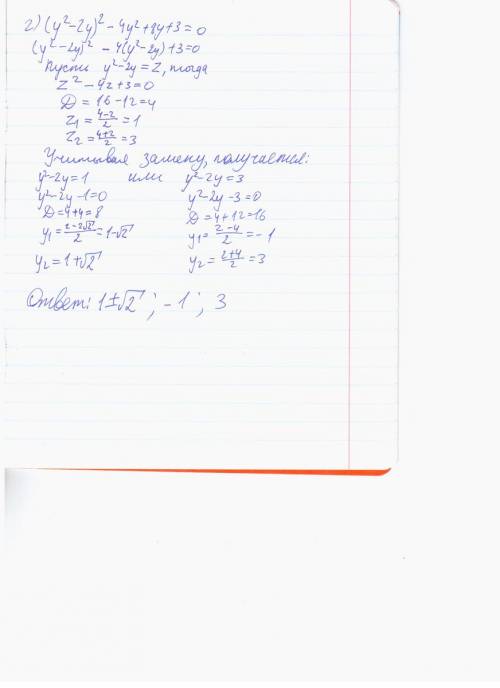 г) (y²-2y)² - 4y² + 8y + 3 = 0
(y²-2y)² - 4(y²-2y) + 3 = 0
Пусть y²-2y = z, тогда
z² - 4z + 3 = 0
D = 16 - 12 = 4
z₁ = (4-2)/2 = 1
z₂ = (4+2)/2 = 3
Учитывая замену, получается:
y²-2y = 1 или y²-2y = 3
y²-2y-1=0 y²-2y-3=0
D=4+4=8 D=4+12=16
y₁ = (2-2√2)/2 = 1-√2 y₁ = (2-4)/2 = -1
y₂ = 1+√2 y₂ = (2+4)/2 = 3
Ответ: 1±√2 ; -1 ; 3